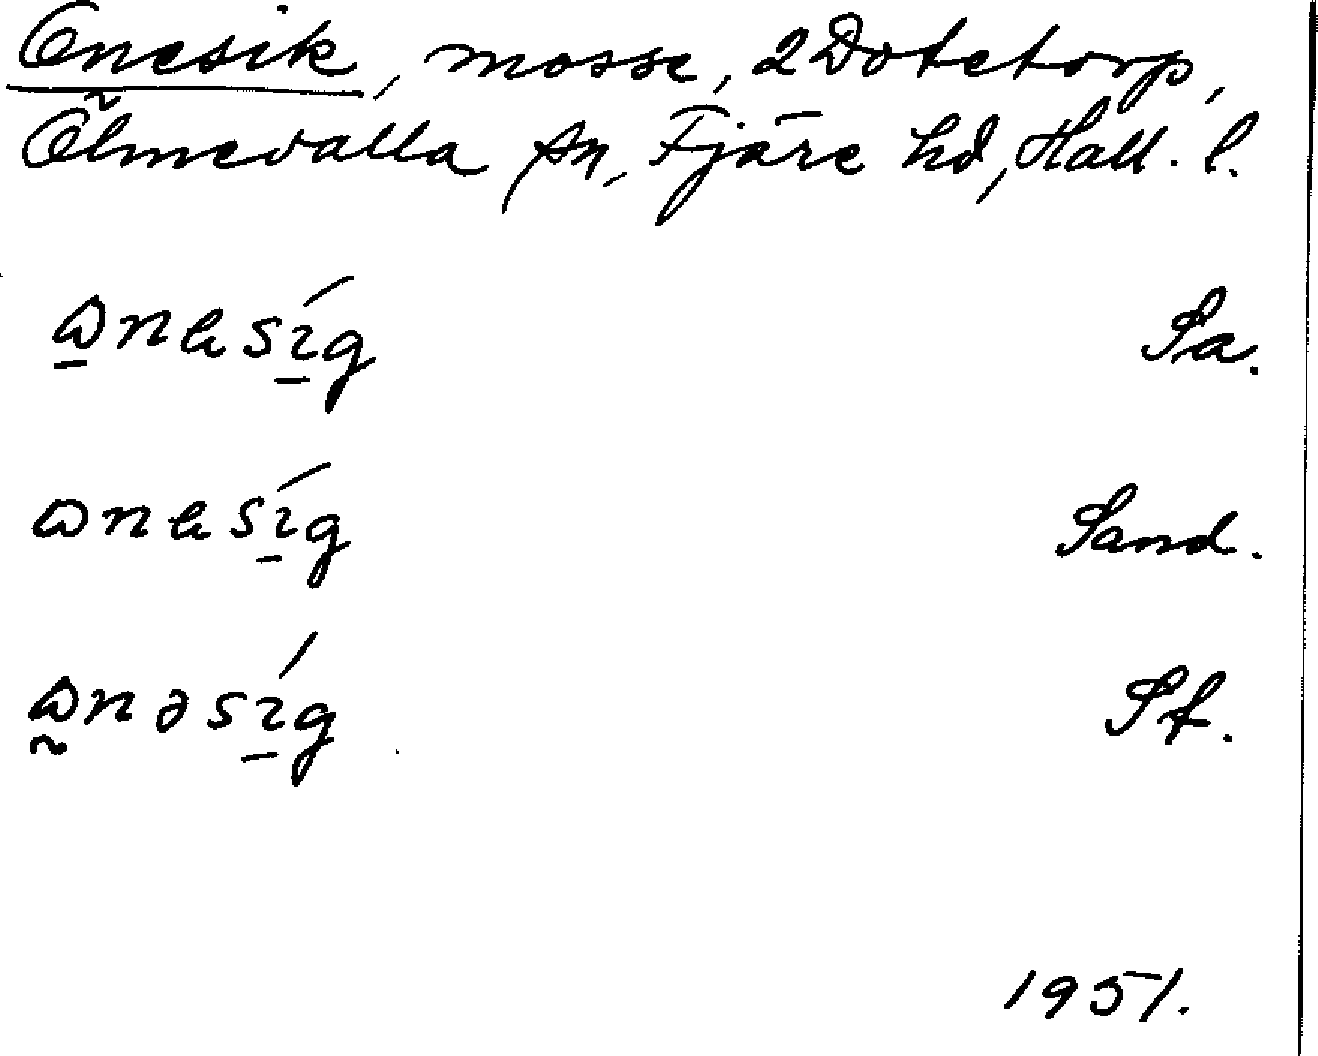 Onesik, mosse, 2 Dotetorp,
Ölmevalla sn, Fjäre hd, Hall. l.
ɷnesíg Sa.
ɷnesíg Sand.
ɷnəsíg Sf.
1951.